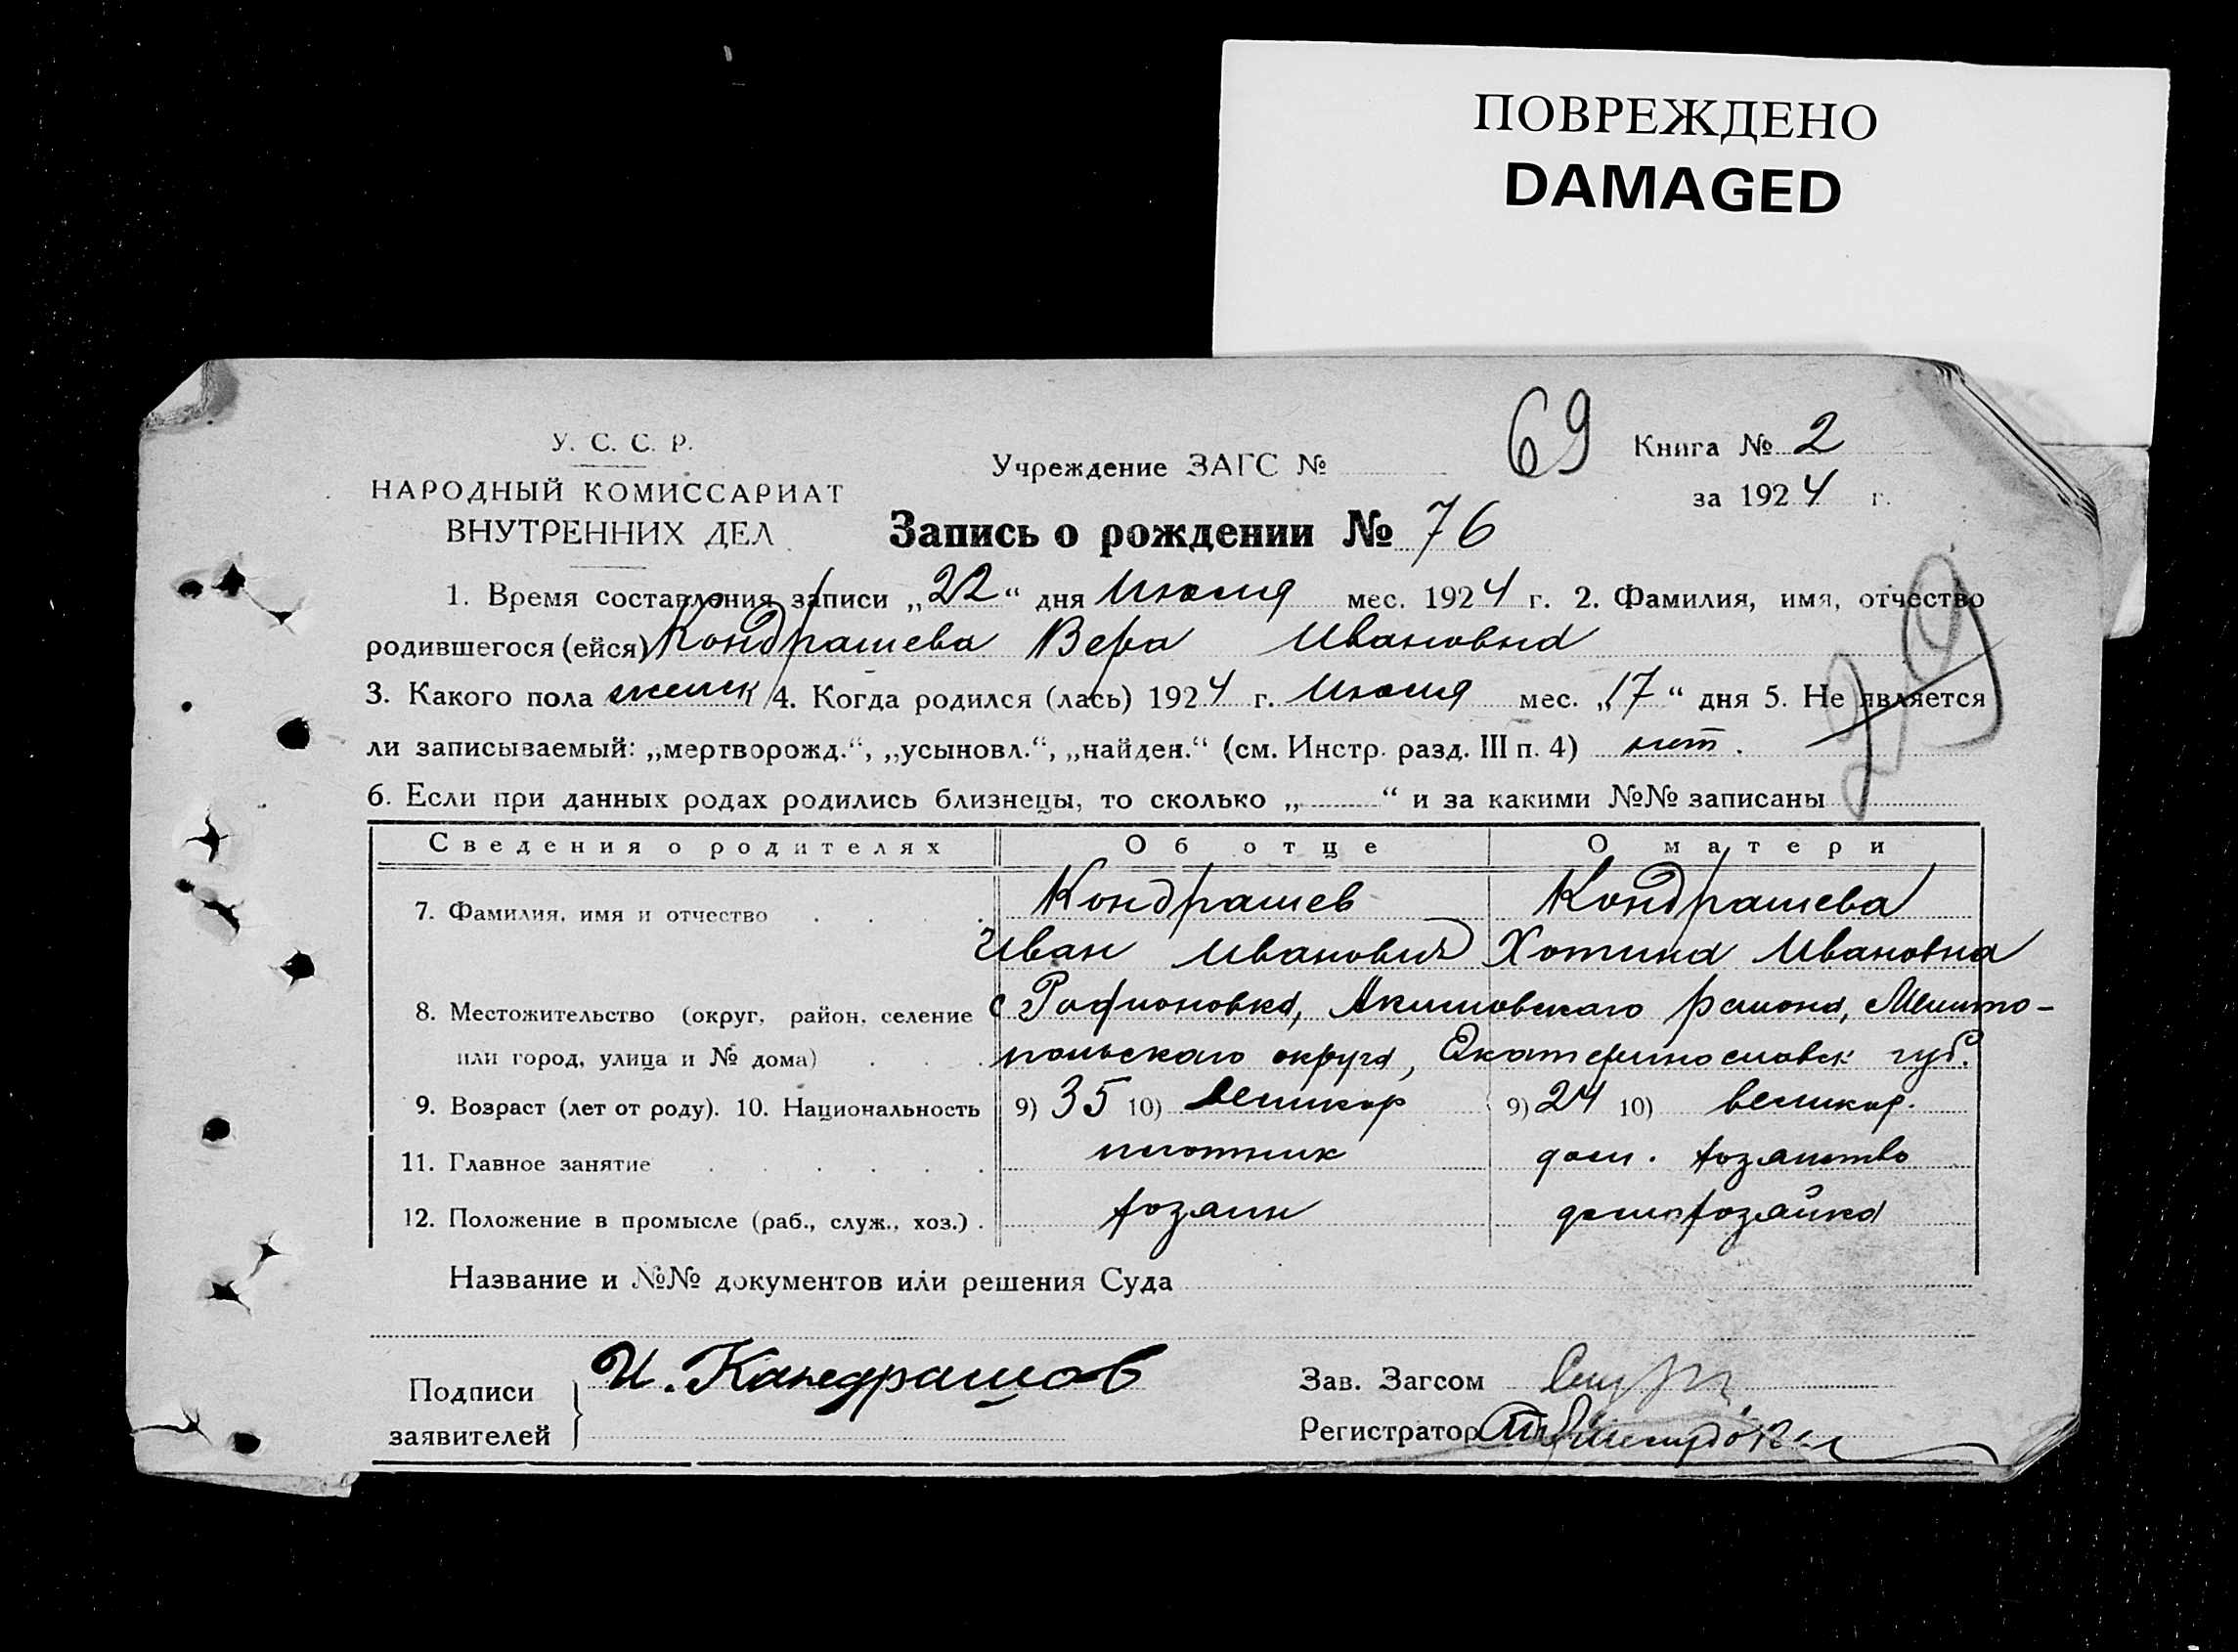 ПОВРЕЖДЕНО
DAMAGED
У. С. С. Р.
НАРОДНЫЙ КОМИССАРИАТ
ВНУТРЕННИХ ДЕЛ
Учреждение ЗАГС №
69
Книга № 2
за 1924 г.
Запись о рождении № 76
29
1. Время составления записи „22“ дня Июля мес. 1924 г. 2. Фамилия, имя, отчество
родившегося (ейся) Кондрашева Вера Ивановна
3. Какого пола женск 4. Когда родился (лась) 1924 г. Июля мес. „17“ дня 5. Не является
ли записываемый: „мертворожд.“, „усыновл.“, „найден.“ (см. Инстр. разд. III п. 4) нет.
6. Если при данных родах родились близнецы, то сколько „ “ и за какими №№ записаны
Сведения о родителях Об отце О матери
7. Фамилия, имя и отчество Кондрашев Кондрашева
Иван Иванович Хотина Ивановна
8. Местожительство (округ, район, селение с Родионовка, Акимовскаго района, Мелито-
или город, улица и № дома) польскаго округа, Екатеринославск губ.
9. Возраст (лет от роду). 10. Национальность 9) 35 10) великор 9) 24 10) великор.
11. Главное занятие плотник дом. хозяйство
12. Положение в промысле (раб., служ., хоз.) хозяин домохозяйка
Название и №№ документов или решения Суда
Подписи заявителей И. Кандрашов
Зав. Загсом
Регистратор